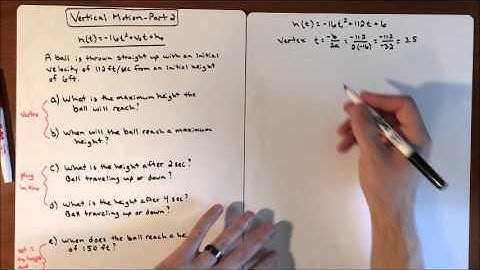 Vertical Motion-Part 2
h(t)=-16t²+v₀t+h₀
A ball is thrown straight up with an initial
velocity of 112 ft/sec from an initial height
of 6ft.
a) What is the maximum height the
ball will reach?
vertex
b) When will the ball reach a maximum
height?
c) What is the height after 2 sec?
Ball traveling up or down?
plug
d) What is the height after 4 sec?
Ball traveling up or down?
e) When does the ball reach a he
of 150 ft?
h(t)=-16t²+112t+6
Vertex t=-b/2a=-112/2(-16)=-112/-32=3.5